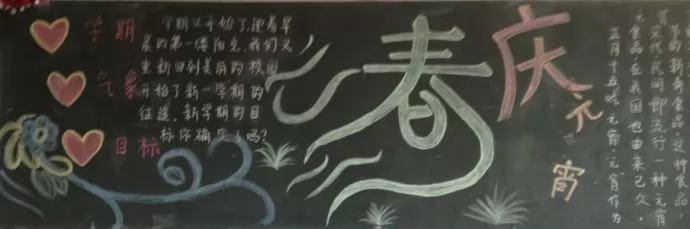 学期
气象
目标
学期又开始了,迎着早
晨的第一缕阳光,我们又
重新回到美丽的校园
开始了新一学期的
征途。新学期的目
标你确定了吗?
春
庆
元
宵
正月十五吃元宵,“元宵”作为
食品,在我国也由来已久。
宋代,民间即流行一种元宵
节的新奇食品。这种食品,